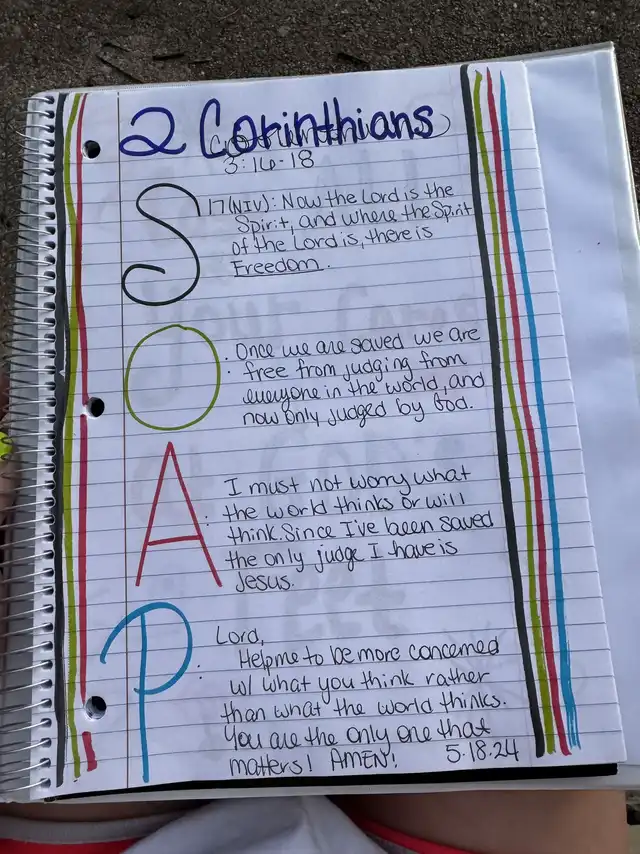 2 Corinthians
3:16-18
S 17(NIV): Now the Lord is the
Spirit, and where the Spirit
of the Lord is, there is
Freedom.
O : Once we are saved we are
free from judging from
everyone in the world, and
now only judged by God.
A : I must not worry what
the world thinks or will
think. Since I've been saved
the only judge I have is
Jesus.
P : Lord,
Help me to be more concerned
w/ what you think rather
than what the world thinks.
You are the only one that
matters! AMEN!
5.18.24